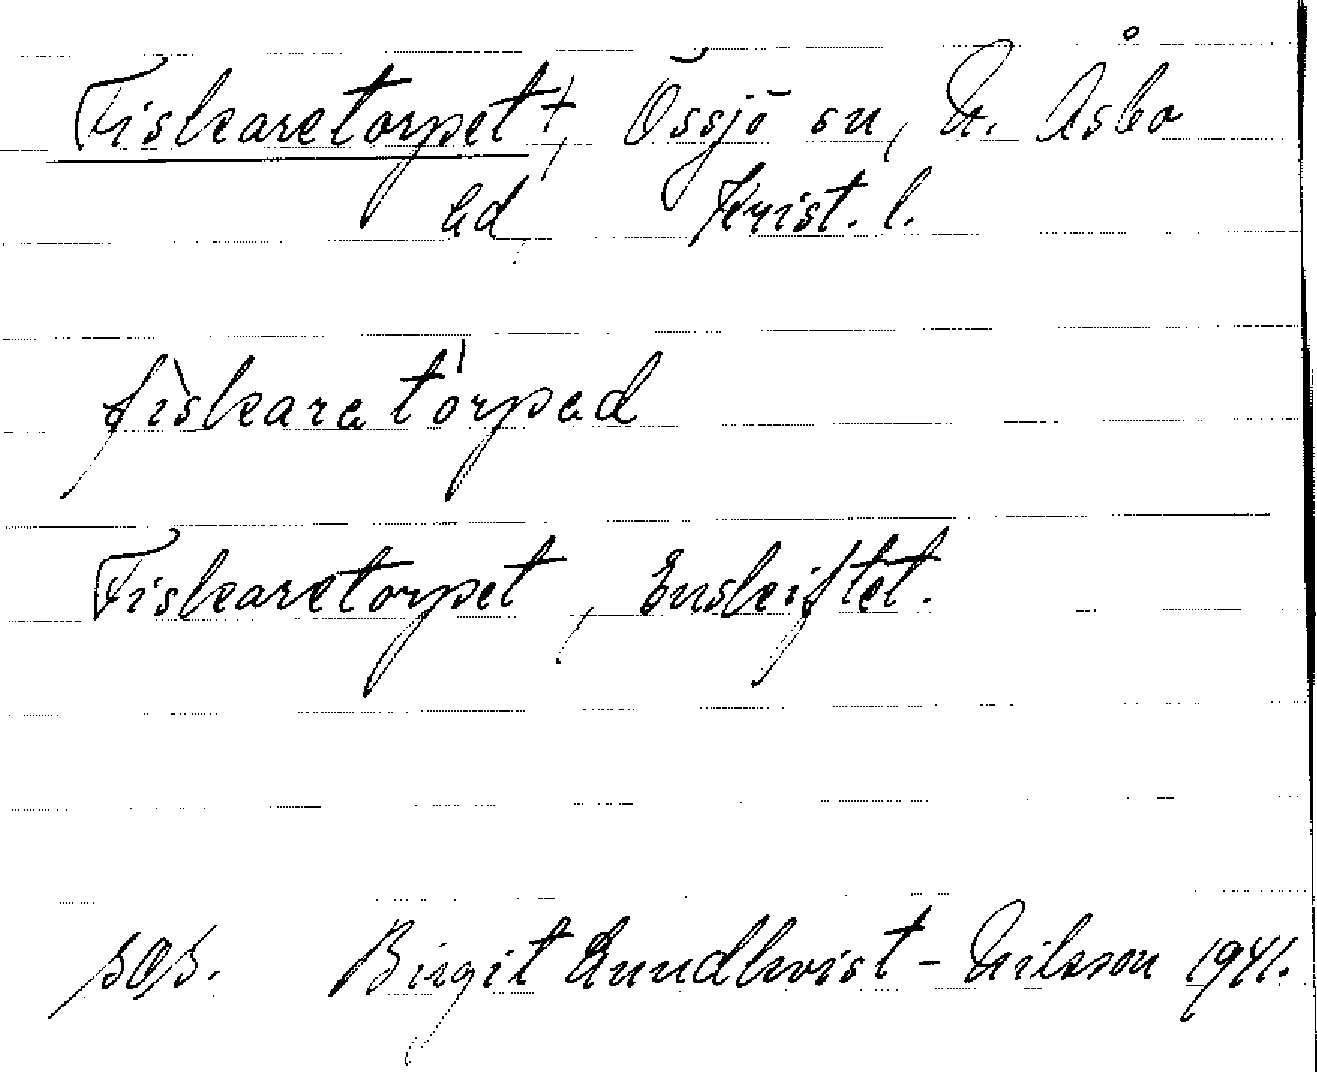 Fiskaretorpet †, Össjö sn, N. Åsbo
hd, Krist. l.
fìskaretórpəd
Fiskaretorpet, Enskiftet.
sos. Birgit Lundkvist-Nilsson 1941.